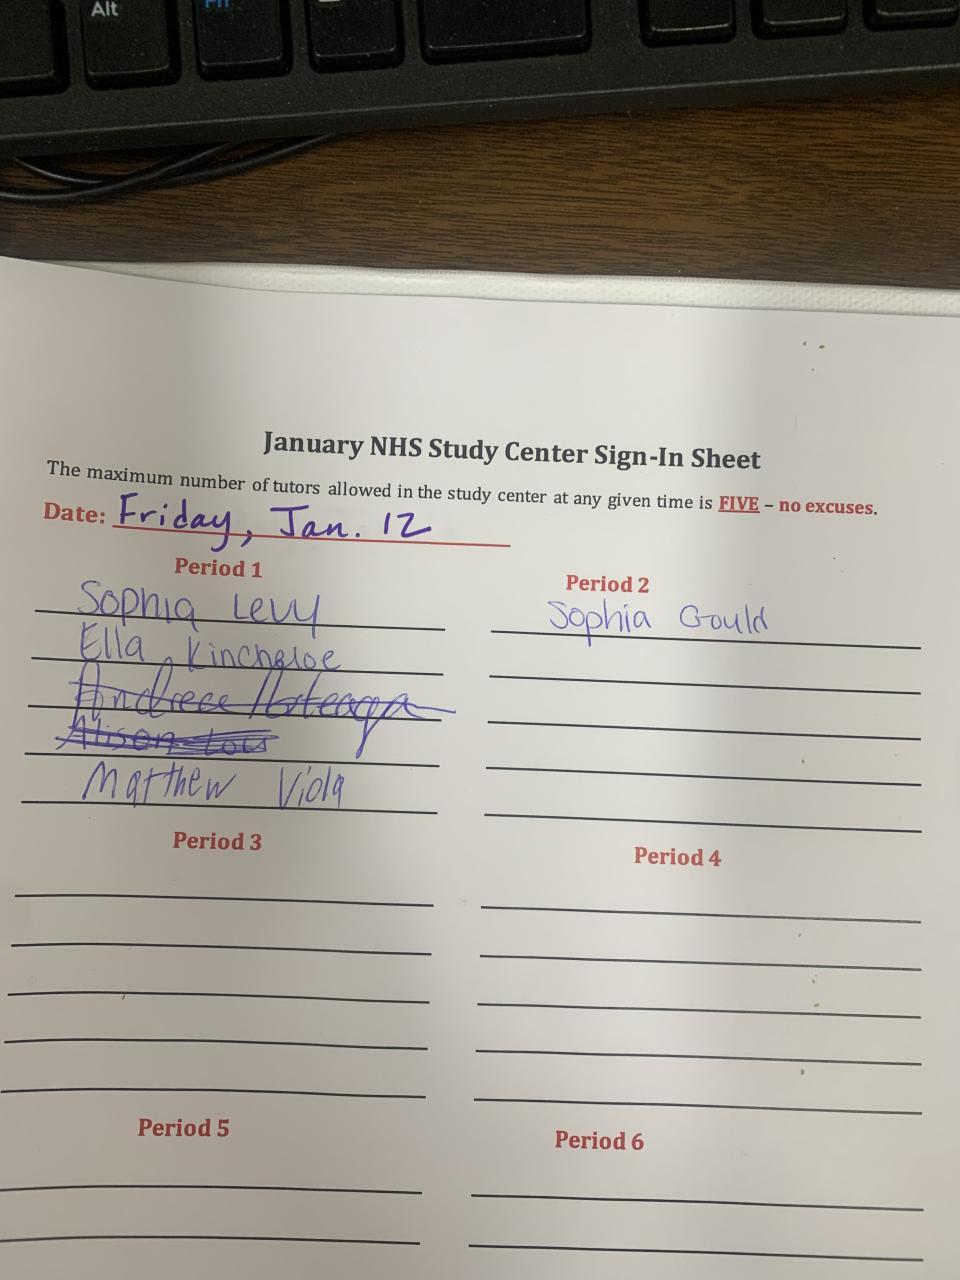 Alt
Fn
January NHS Study Center Sign-In Sheet
The maximum number of tutors allowed in the study center at any given time is FIVE – no excuses.
Date: Friday, Jan. 12
Period 1
Sophia Levy
Ella Kincheloe
Matthew Viola
Period 2
Sophia Gould
Period 3
Period 4
Period 5
Period 6